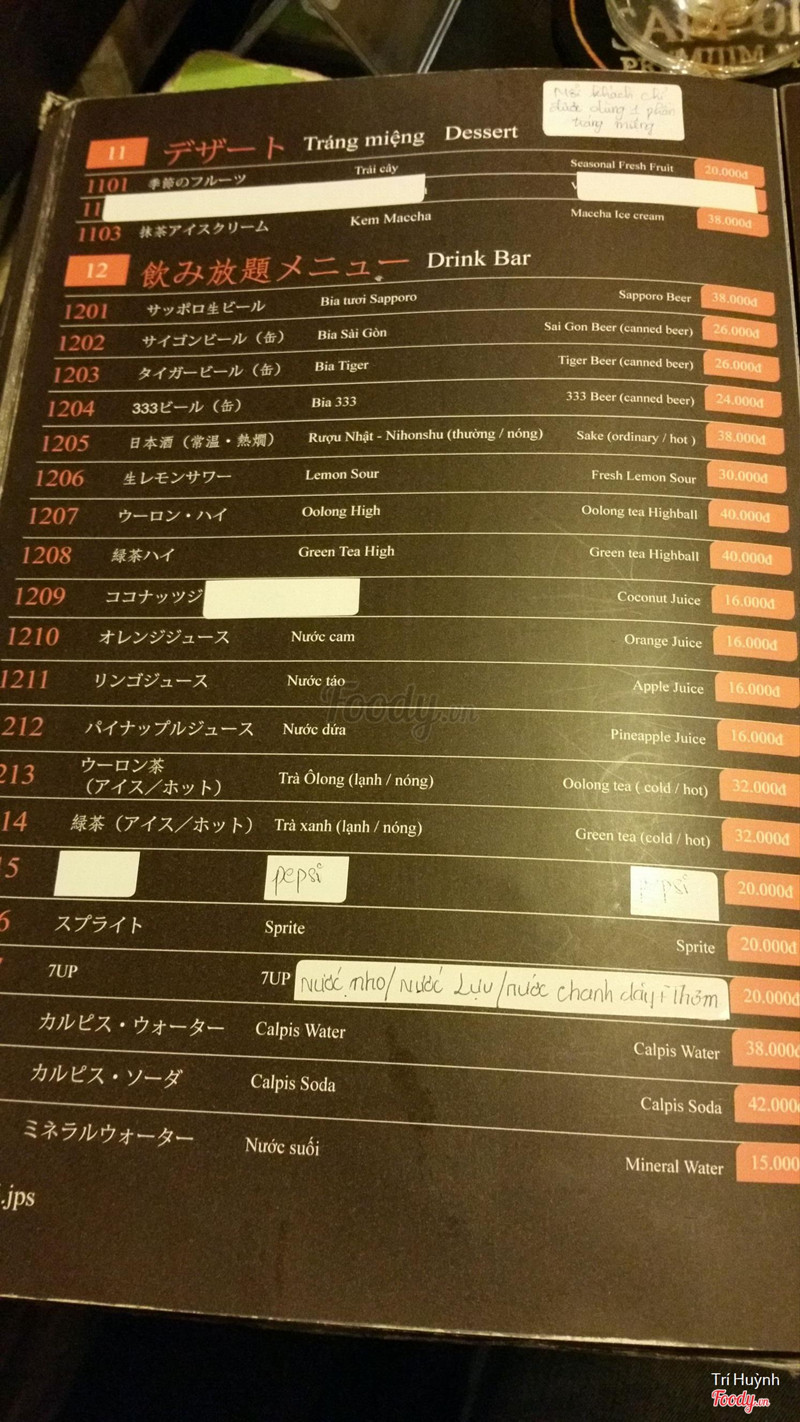 SAPPORO
PREMIUM
Mỗi khách chỉ
được dùng 1 phần
tráng miệng
11 デザート Tráng miệng Dessert
1101 季節のフルーツ Trái cây Seasonal Fresh Fruit 20.000đ
11
1103 抹茶アイスクリーム Kem Maccha Maccha Ice cream 38.000đ
12 飲み放題メニュー Drink Bar
1201 サッポロ生ビール Bia tươi Sapporo Sapporo Beer 38.000đ
1202 サイゴンビール（缶） Bia Sài Gòn Sai Gon Beer (canned beer) 26.000đ
1203 タイガービール（缶） Bia Tiger Tiger Beer (canned beer) 26.000đ
1204 333ビール（缶） Bia 333 333 Beer (canned beer) 24.000đ
1205 日本酒（常温・熱燗） Rượu Nhật - Nihonshu (thường / nóng) Sake (ordinary / hot ) 38.000đ
1206 生レモンサワー Lemon Sour Fresh Lemon Sour 30.000đ
1207 ウーロン・ハイ Oolong High Oolong tea Highball 40.000đ
1208 緑茶ハイ Green Tea High Green tea Highball 40.000đ
1209 ココナッツジ Coconut Juice 16.000đ
1210 オレンジジュース Nước cam Orange Juice 16.000đ
1211 リンゴジュース Nước táo Apple Juice 16.000đ
212 パイナップルジュース Nước dứa Pineapple Juice 16.000đ
213 ウーロン茶
（アイス／ホット） Trà Ôlong (lạnh / nóng) Oolong tea ( cold / hot) 32.000đ
14 緑茶（アイス／ホット） Trà xanh (lạnh / nóng) Green tea (cold / hot) 32.000đ
15 pepsi pepsi 20.000đ
6 スプライト Sprite Sprite 20.000đ
7UP 7UP Nước nho/Nước Lựu/nước chanh dây+Thơm 20.000đ
カルピス・ウォーター Calpis Water Calpis Water 38.000đ
カルピス・ソーダ Calpis Soda Calpis Soda 42.000đ
ミネラルウォーター Nước suối Mineral Water 15.000
.jps
Foody.vn
Trí Huỳnh
Foody.vn